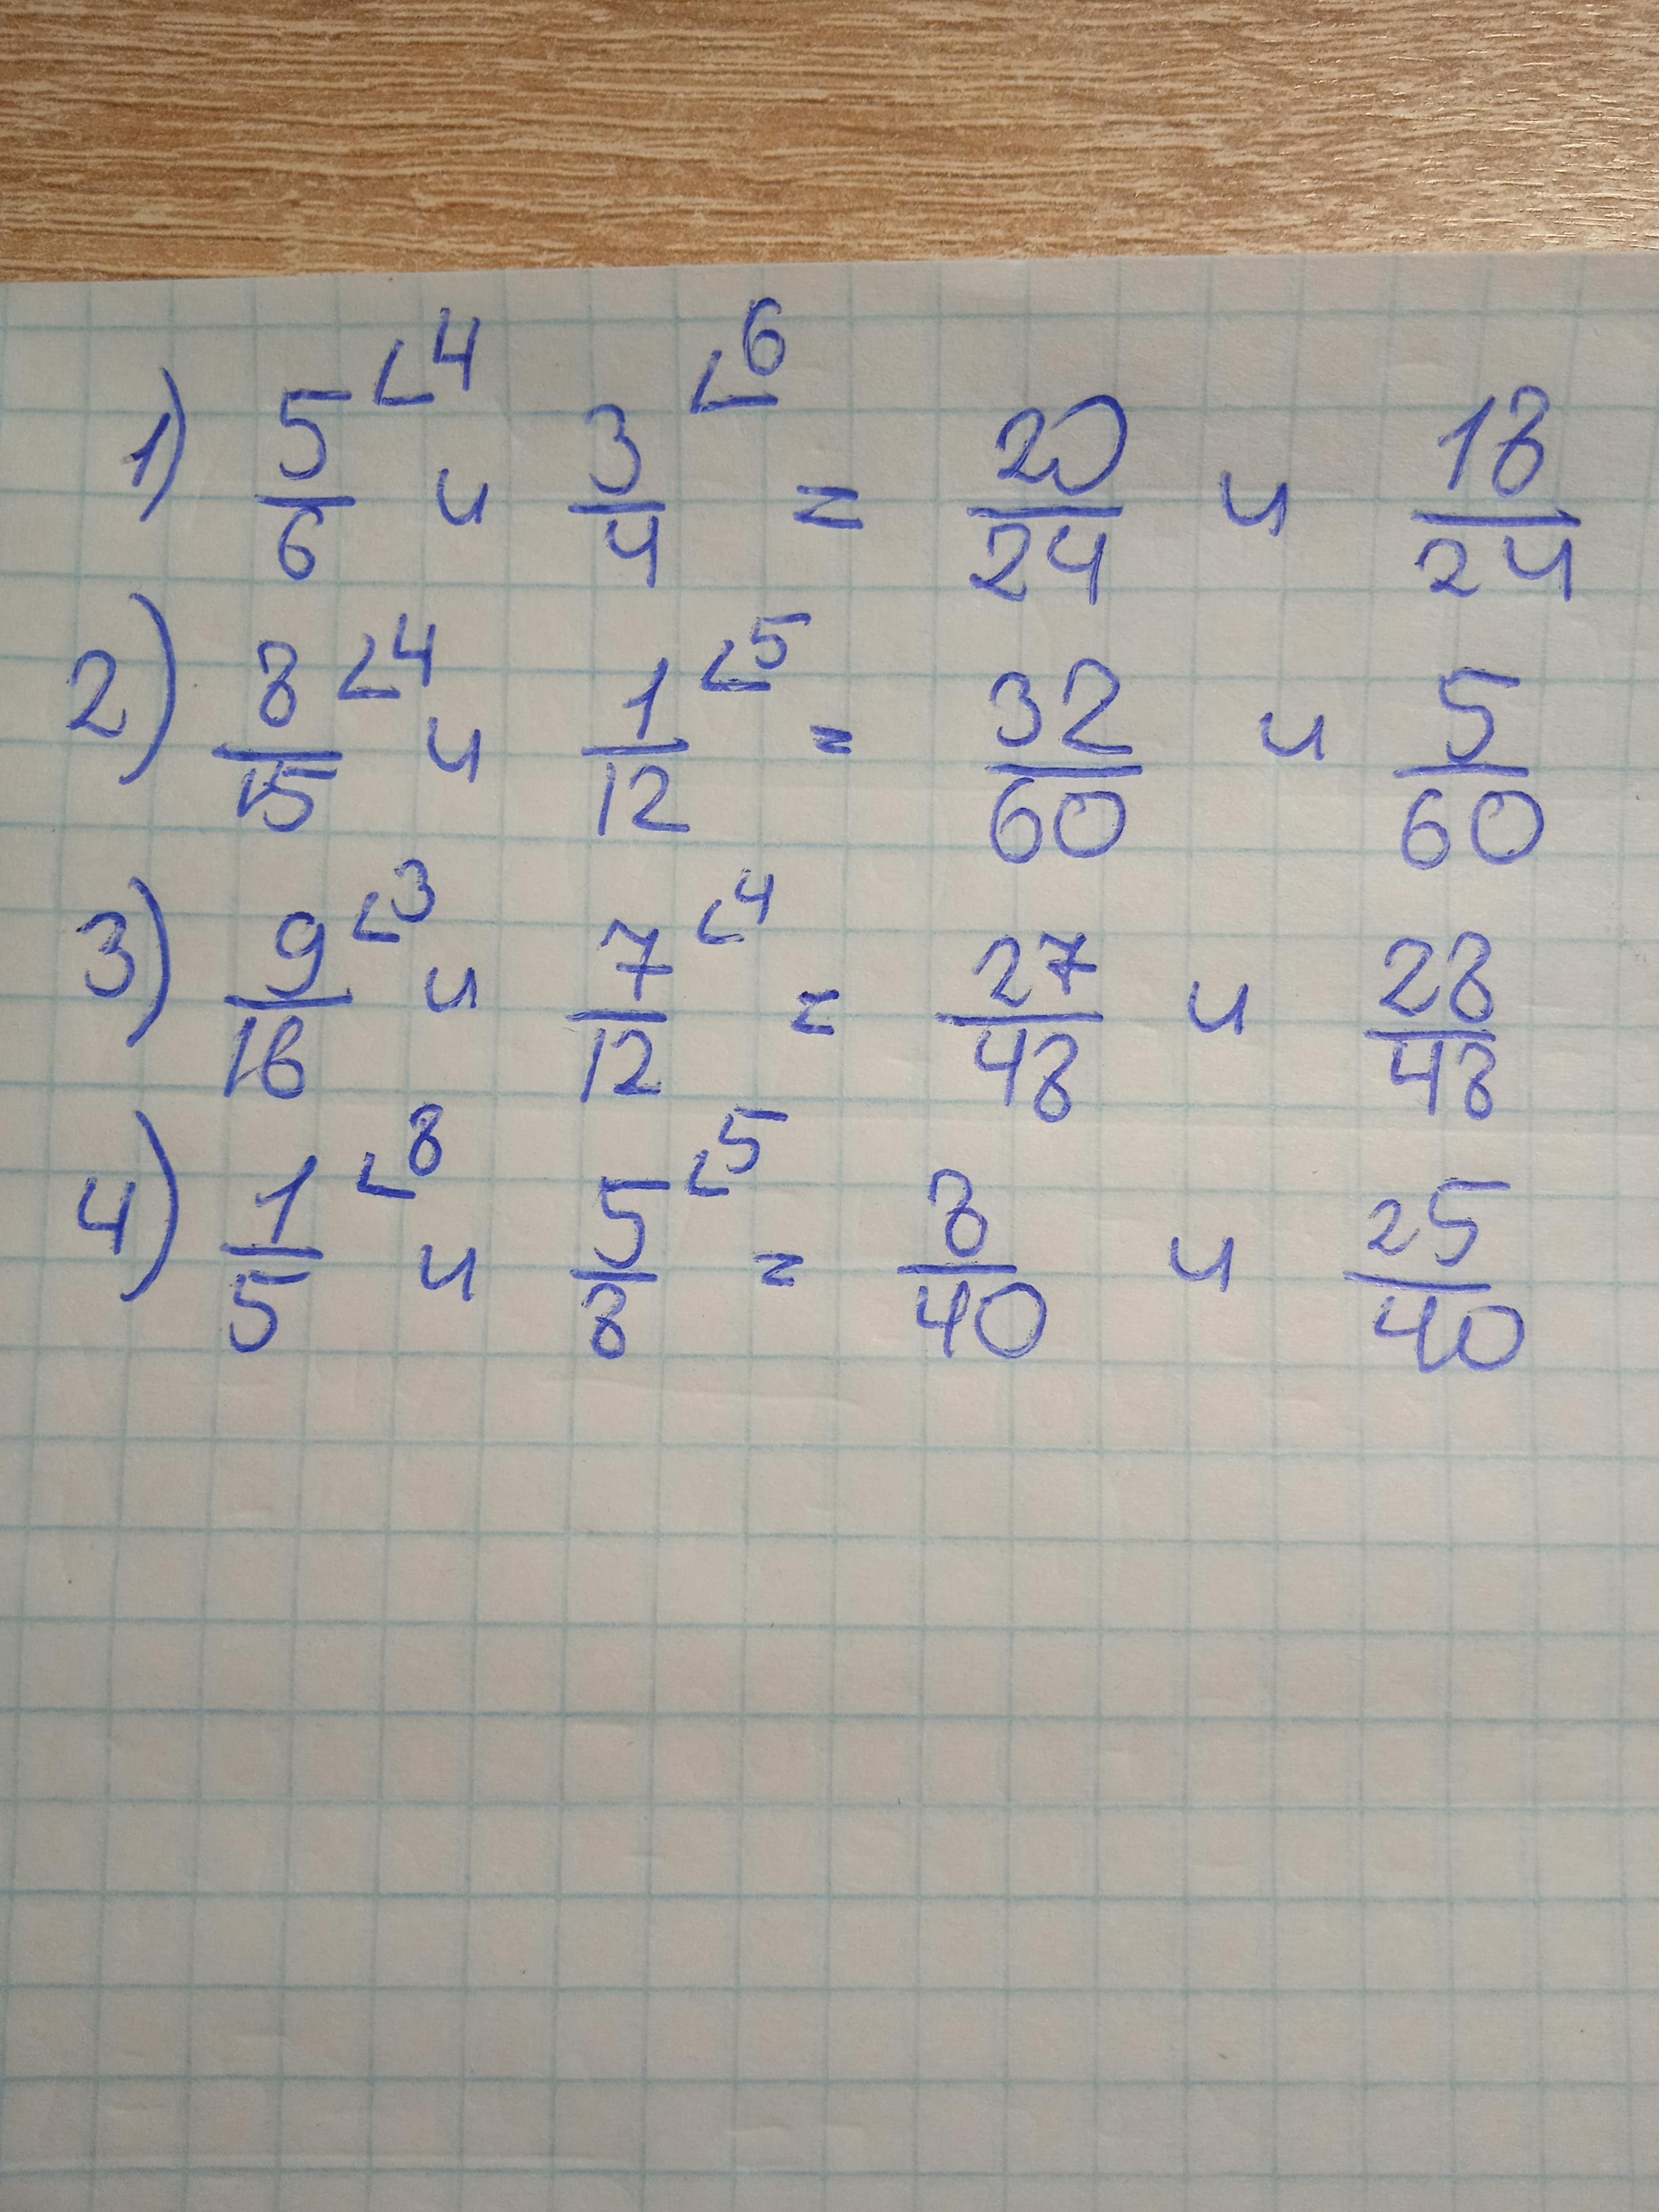 1) 5/6 ∠4 и 3/4 ∠6 = 20/24 и 18/24
2) 8/15 ∠4 и 1/12 ∠5 = 32/60 и 5/60
3) 9/16 ∠3 и 7/12 ∠4 = 27/48 и 28/48
4) 1/5 ∠8 и 5/8 ∠5 = 8/40 и 25/40